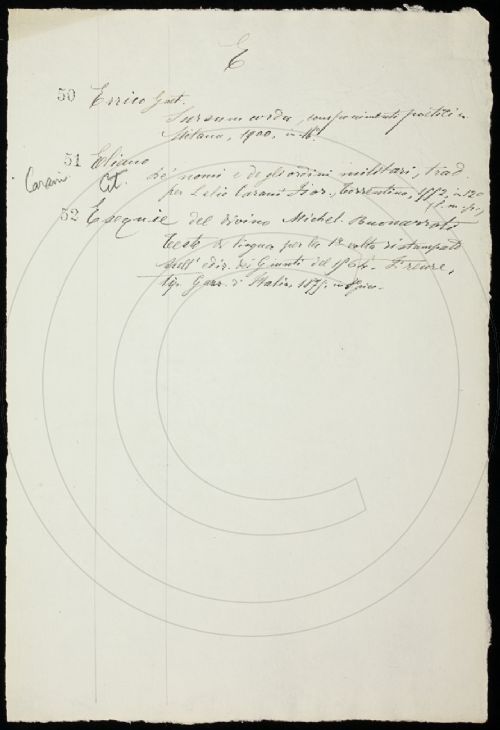 E
50 Errico Gius.
Sursum corda, componimenti poetici
Milano, 1900. in 16°.
51 Eliano
Carani Cit. De' nomi e degli ordini militari, trad.
per Lelio Carani Fior., Torrentino, 1552, in 12°
52 Esequie del divino Michel. Buonarroti
Testo di lingua per la 1a volta ristampato
sull' ediz. dei Giunti del 1564. Firenze,
tip. Gazz. d'Italia, 1875. in